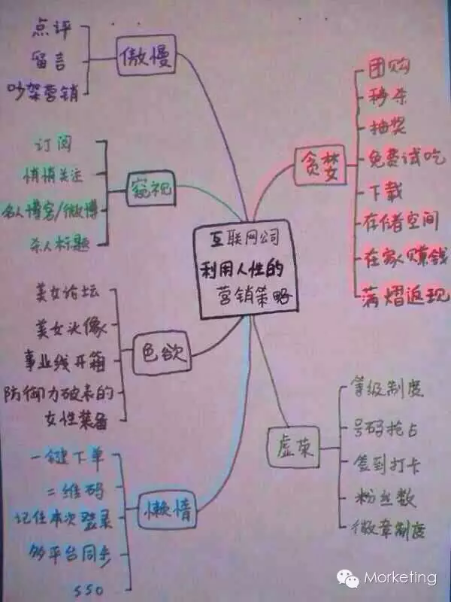 互联网公司
利用人性的
营销策略
傲慢
点评
留言
吵架营销
窥视
订阅
悄悄关注
名人博客/微博
杀人标题
色欲
美女论坛
美女头像
事业线开箱
防御力破表的
女性装备
懒惰
一键下单
二维码
记住本次登录
多平台同步
SSO
贪婪
团购
秒杀
抽奖
免费试吃
下载
存储空间
在家赚钱
满熠返现
虚荣
等级制度
号码抢占
签到打卡
粉丝数
徽章制度
Morketing